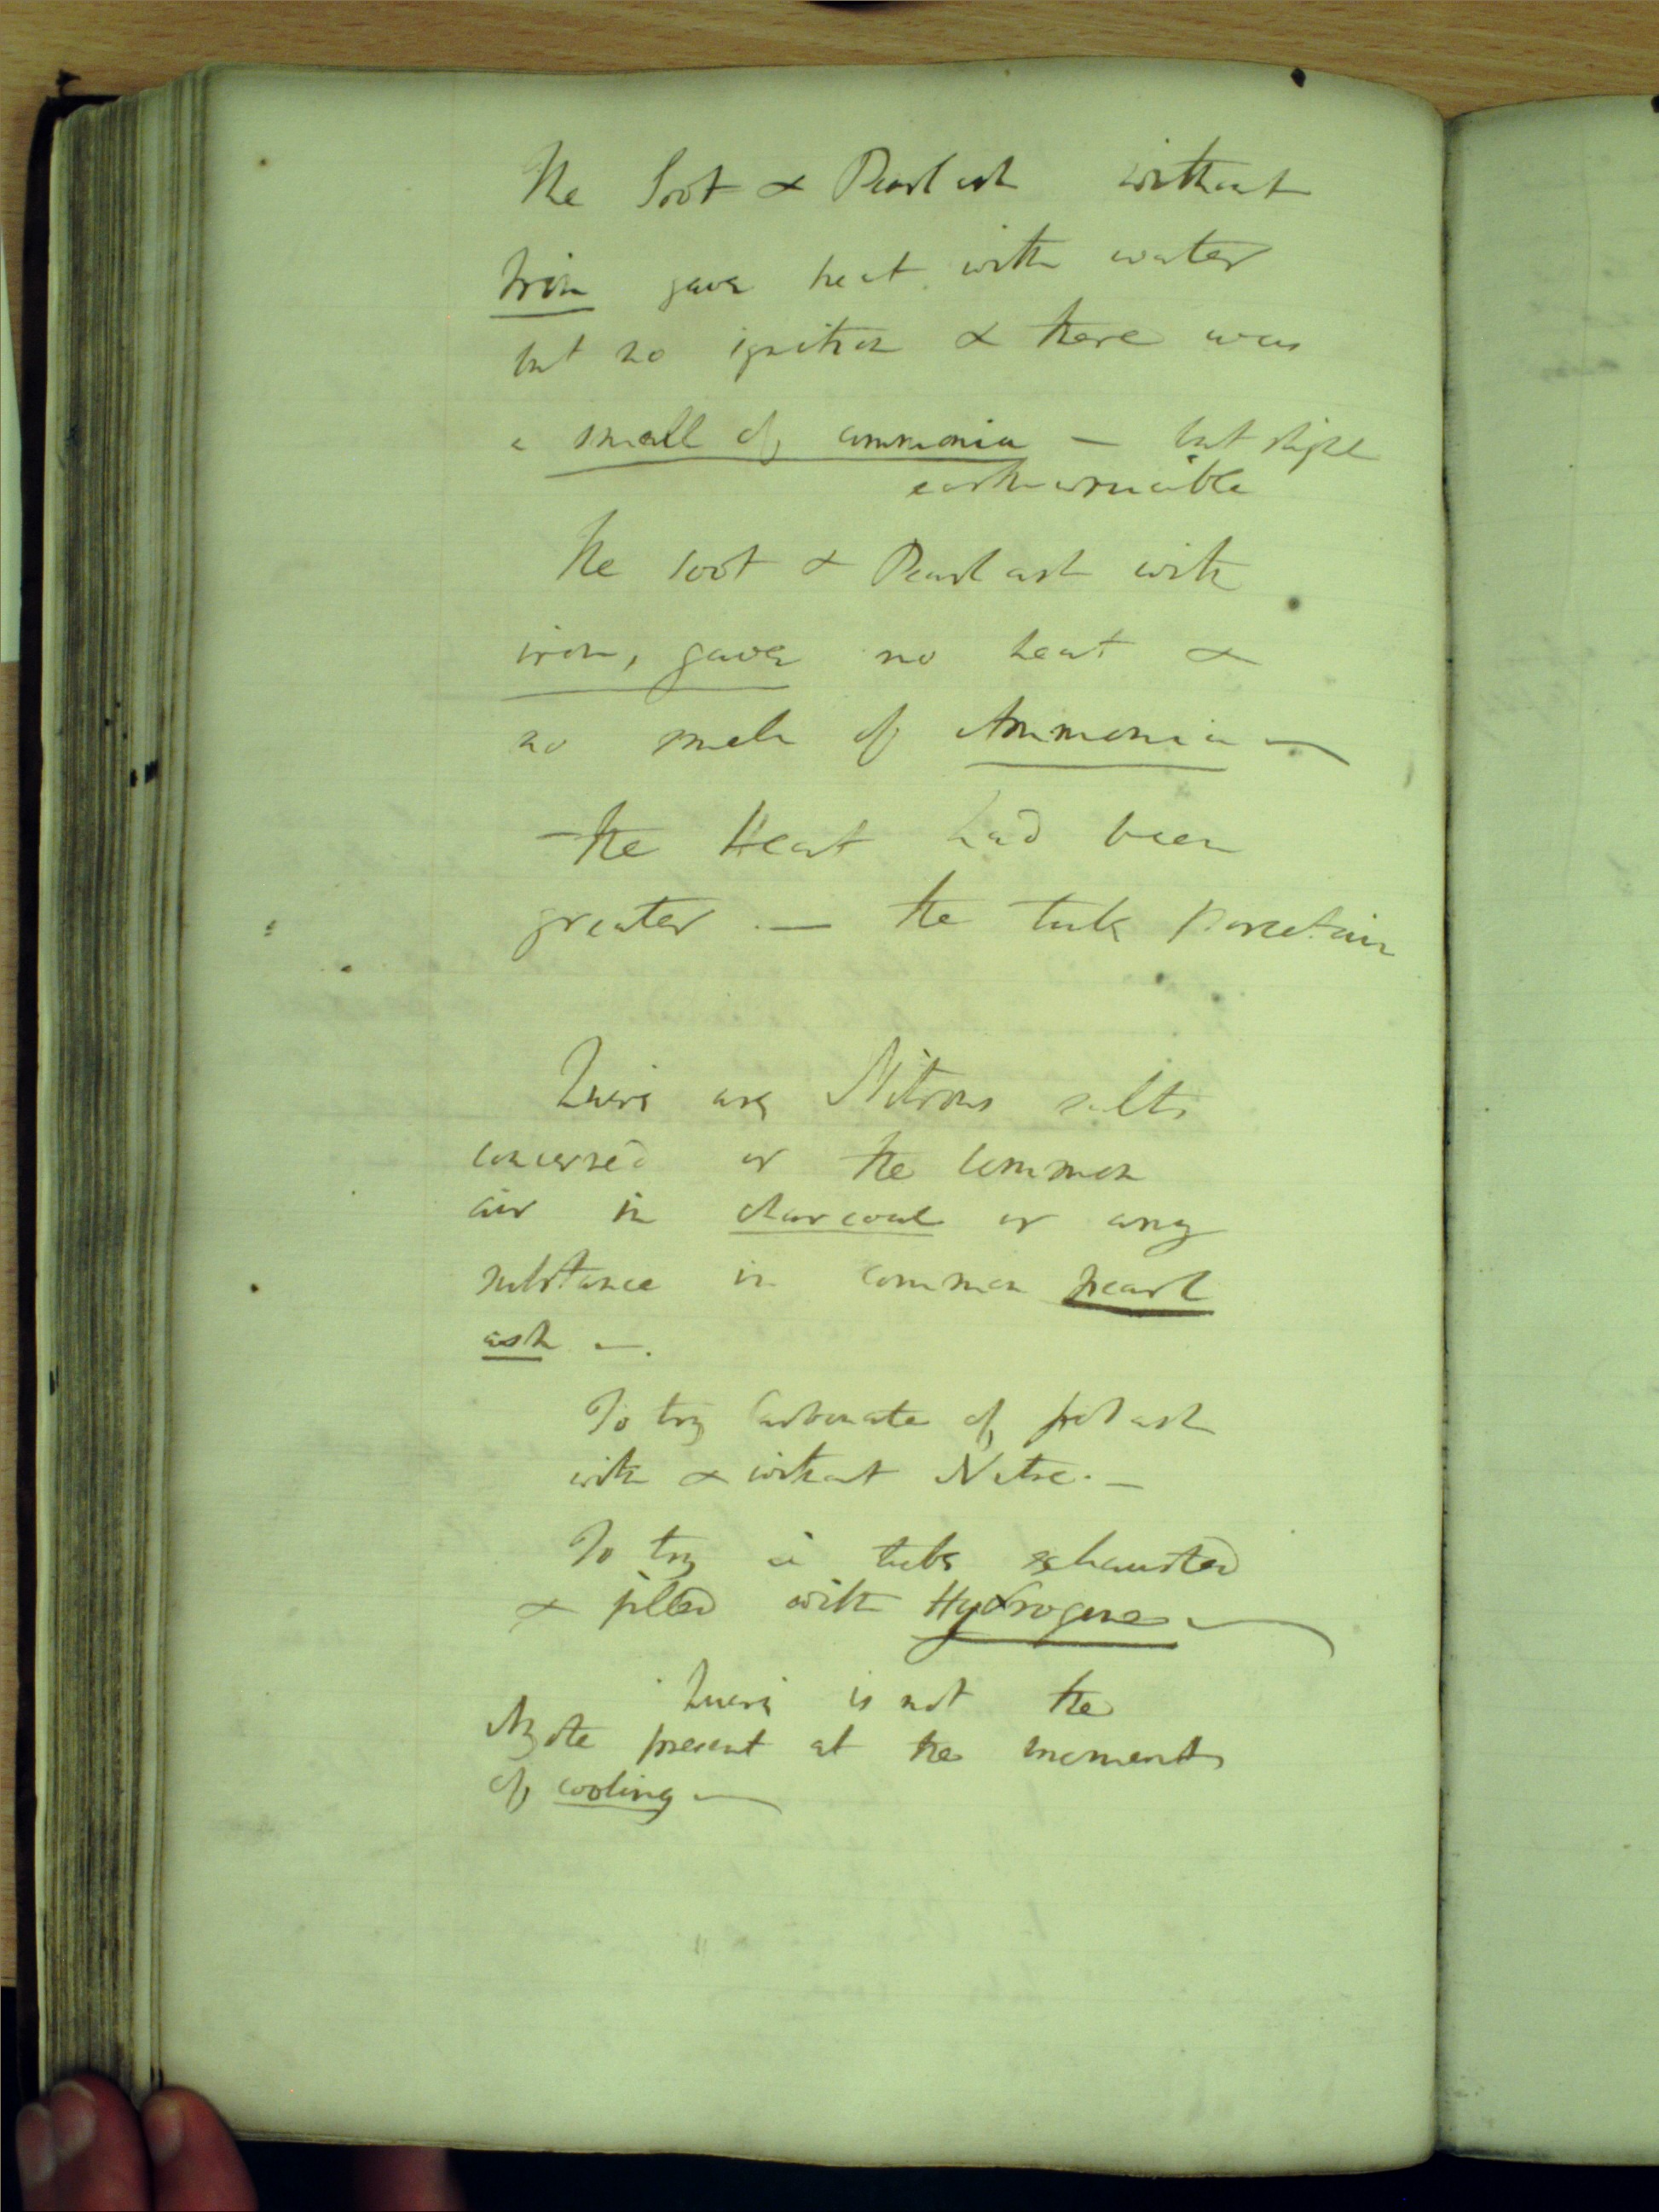 The Soot & Pearl ash without
Iron gave heat with water
but no ignition & there was
a smell of ammonia — but slight
The soot & Pearl ash with
iron, gave no heat &
no smell of Ammonia —
— the Heat had been
greater. — the tube Porcelain
Quere are Nitrous salts
concerned or the common
air in charcoal or any
substance in common pearl
ash —.
To try Carbonate of potash
with & without Nitre. —
To try in tube exhausted
& filled with Hydrogene —
Quere is not the
Azote present at the moment
of cooling —